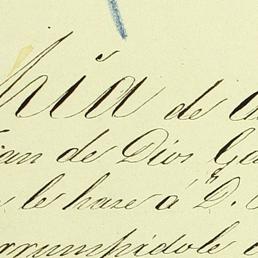 hia de
an de Dios
le hase á D.
rrumpidole